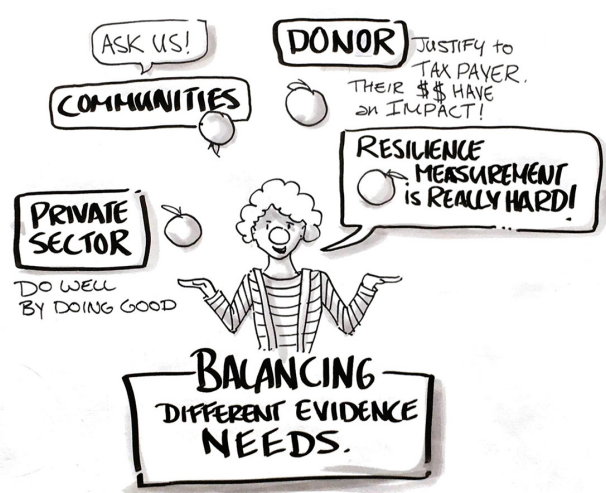 ASK US!
COMMUNITIES
DONOR
JUSTIFY to
TAX PAYER.
THEIR $$ HAVE
an IMPACT!
RESILIENCE
MEASUREMENT
is REALLY HARD!
PRIVATE
SECTOR
DO WELL
BY DOING GOOD
BALANCING
DIFFERENT EVIDENCE
NEEDS.